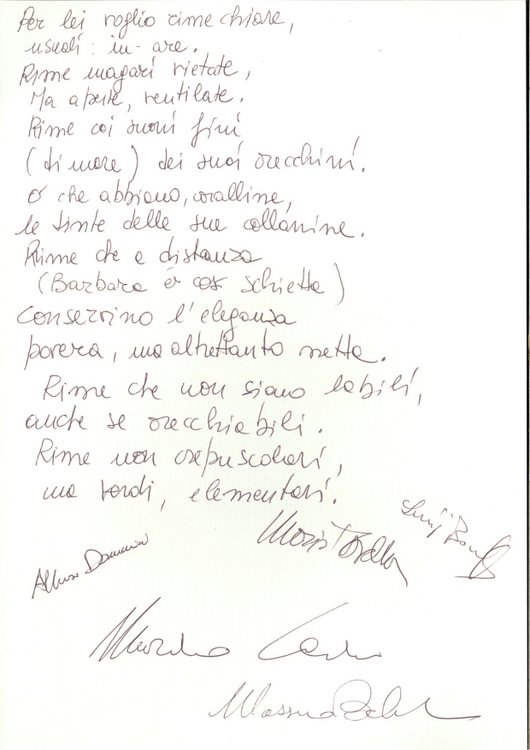 Per lei voglio rime chiare,
usuali: in-are.
Rime magari vietate,
Ma aperte, ventilate.
Rime coi suoni fini
(di mare) dei suoi orecchini.
O che abbiano, coralline,
le tinte delle sue collanine.
Rime che a distanza
(Barbara è così schietta)
Conservino l'eleganza
povera, ma altrettanto netta.
Rime che non siano labili,
anche se orecchiabili.
Rime non crepuscolari,
ma verdi, elementari.